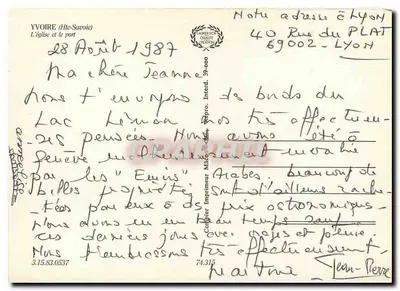 YVOIRE (Hte-Savoie)
L'église et le port
Notre adresse à LYON
40 Rue du PLAT
69002 - LYON
28 Août 1987
Ma chère Jeanne
nous t'envoyons des bords du
Lac Léman nos très affectueu-
ses pensées. Nous avons été à
Genève malheureusement envahie
par les "Emirs" Arabes. beaucoup de
belles propriétés sont d'ailleurs rache-
tées par eux à des prix astronomiques.
Nous avons eu un beau temps sauf
ces derniers jours avec orages et pluie.
Nous t'embrassons très affectueusement
Jean-Pierre
3.15.83.0537
74.315